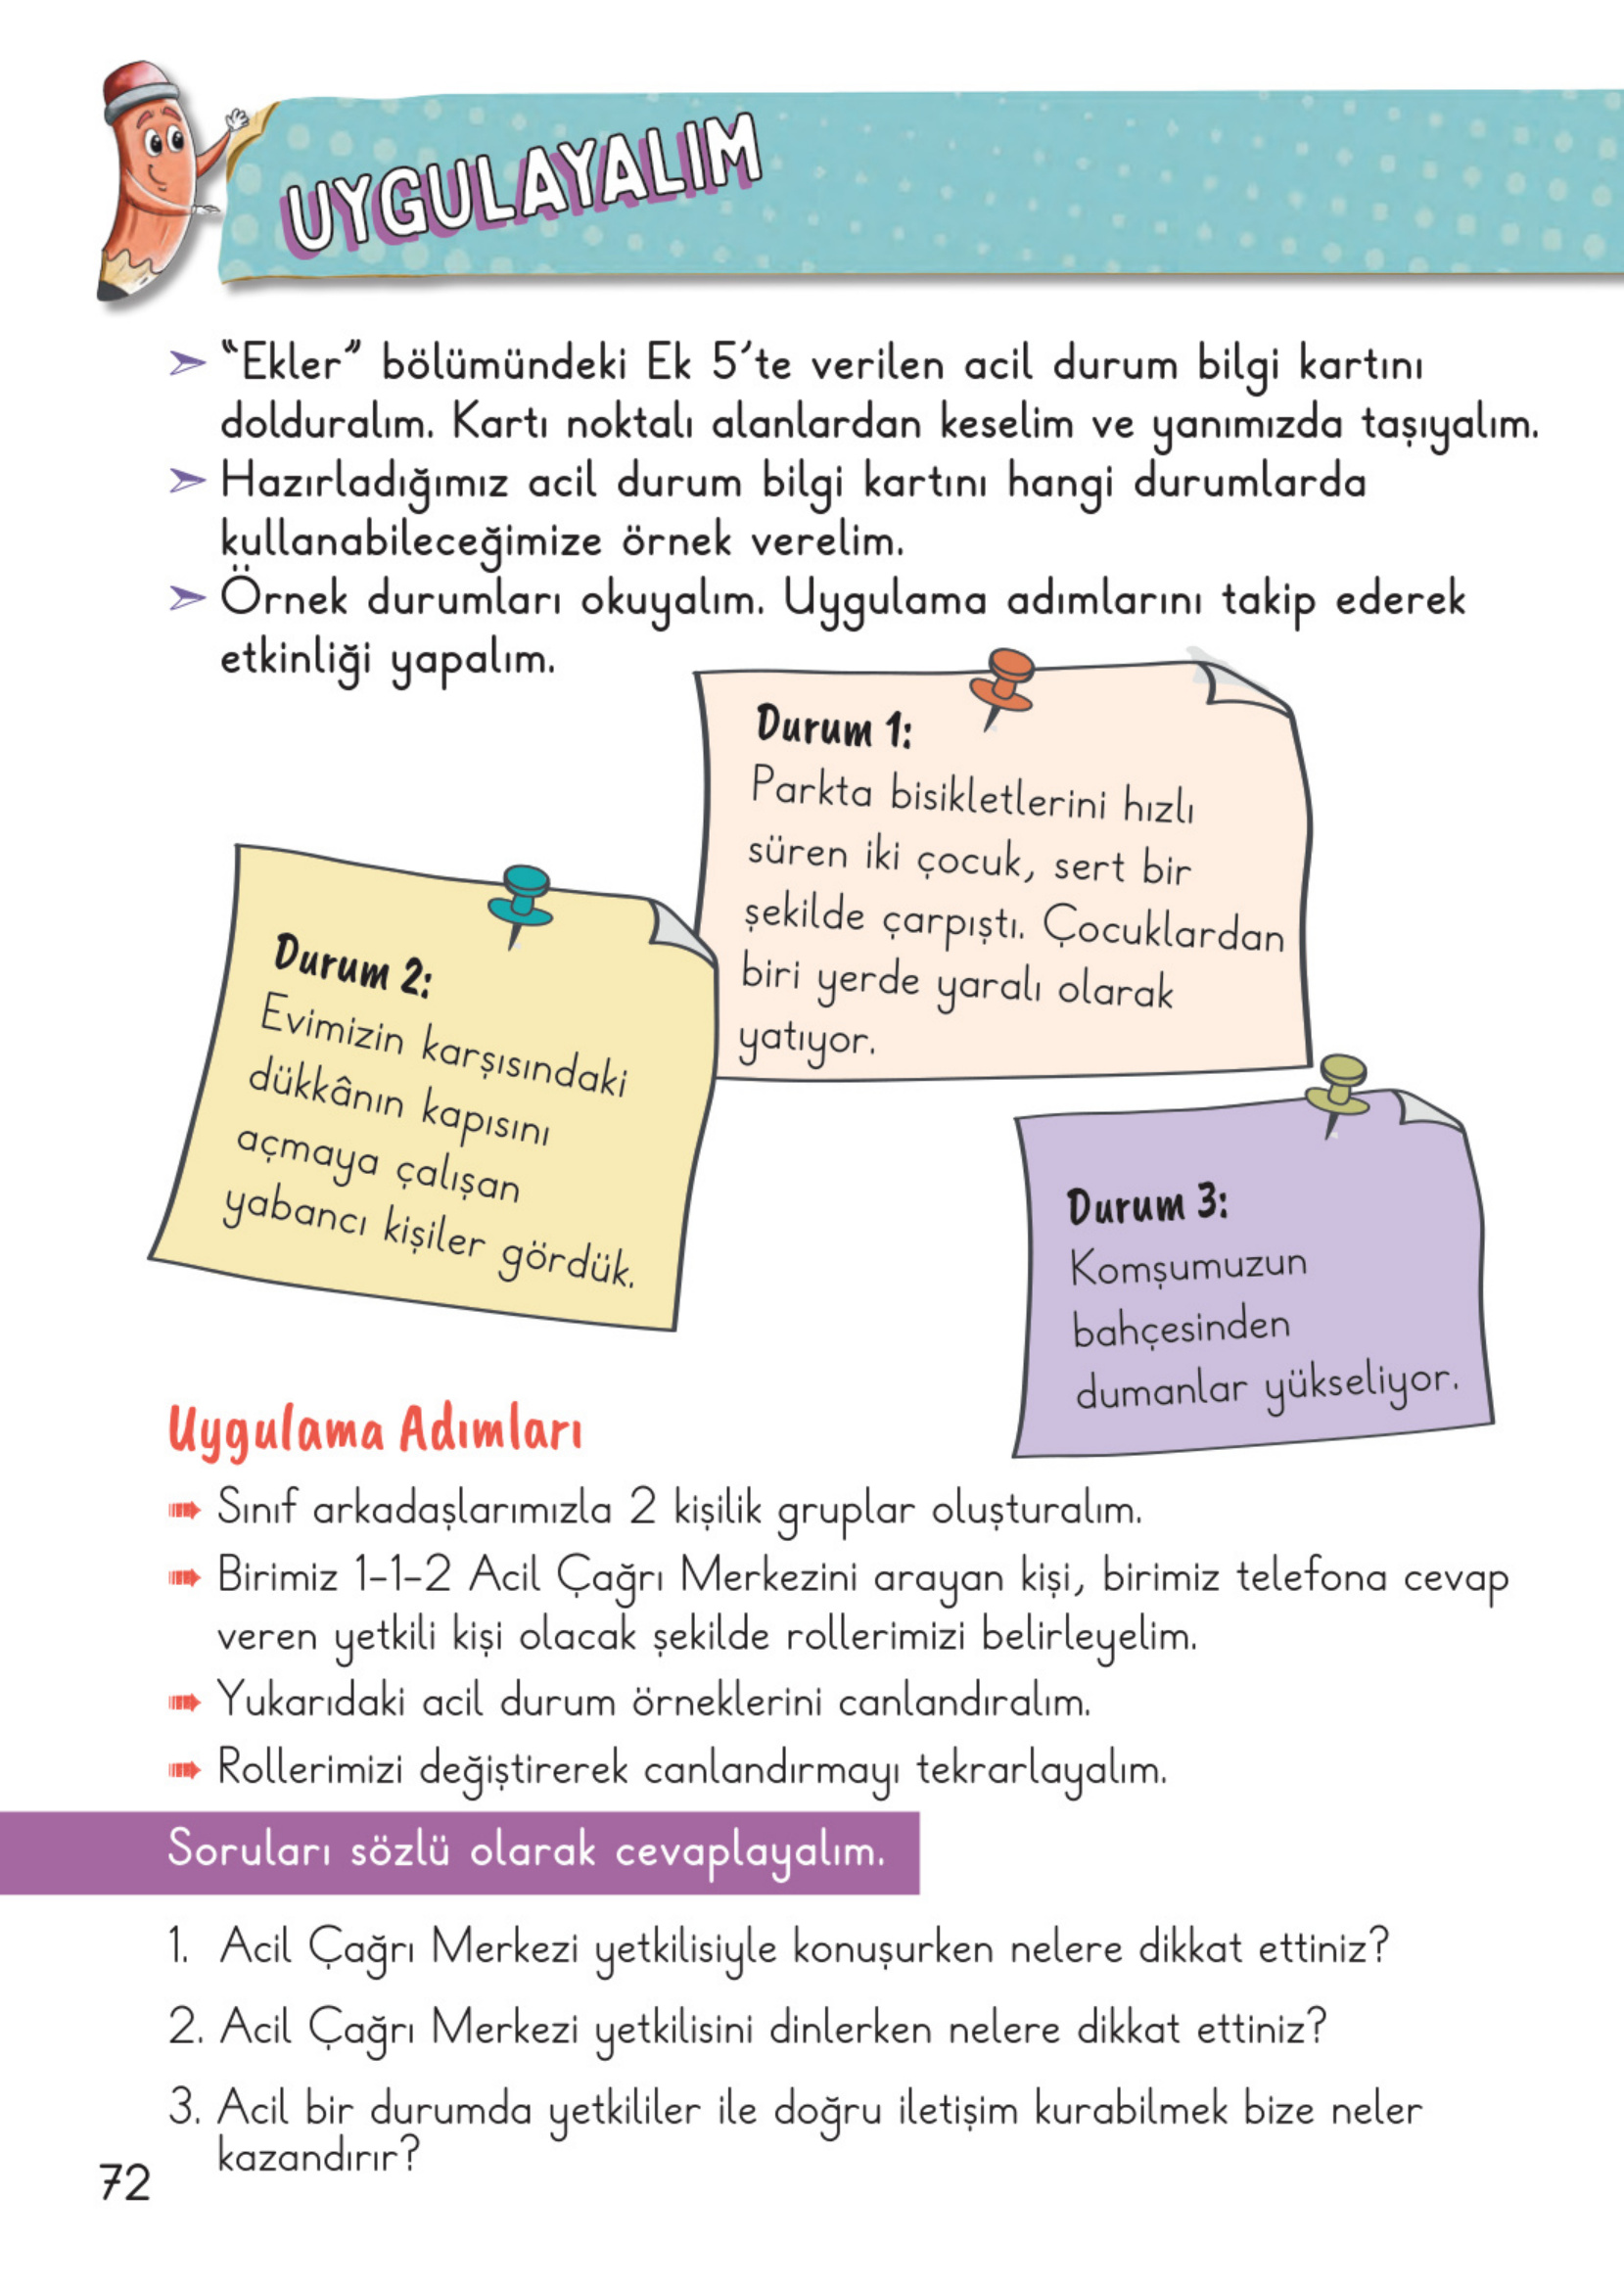 UYGULAYALIM
“Ekler” bölümündeki Ek 5’te verilen acil durum bilgi kartını
dolduralım. Kartı noktalı alanlardan keselim ve yanımızda taşıyalım.
Hazırladığımız acil durum bilgi kartını hangi durumlarda
kullanabileceğimize örnek verelim.
Örnek durumları okuyalım. Uygulama adımlarını takip ederek
etkinliği yapalım.
Durum 1:
Parkta bisikletlerini hızlı
süren iki çocuk, sert bir
şekilde çarpıştı. Çocuklardan
biri yerde yaralı olarak
yatıyor.
Durum 2:
Evimizin karşısındaki
dükkânın kapısını
açmaya çalışan
yabancı kişiler gördük.
Durum 3:
Komşumuzun
bahçesinden
dumanlar yükseliyor.
Uygulama Adımları
Sınıf arkadaşlarımızla 2 kişilik gruplar oluşturalım.
Birimiz 1-1-2 Acil Çağrı Merkezini arayan kişi, birimiz telefona cevap
veren yetkili kişi olacak şekilde rollerimizi belirleyelim.
Yukarıdaki acil durum örneklerini canlandıralım.
Rollerimizi değiştirerek canlandırmayı tekrarlayalım.
Soruları sözlü olarak cevaplayalım.
1. Acil Çağrı Merkezi yetkilisiyle konuşurken nelere dikkat ettiniz?
2. Acil Çağrı Merkezi yetkilisini dinlerken nelere dikkat ettiniz?
3. Acil bir durumda yetkililer ile doğru iletişim kurabilmek bize neler
kazandırır?
72